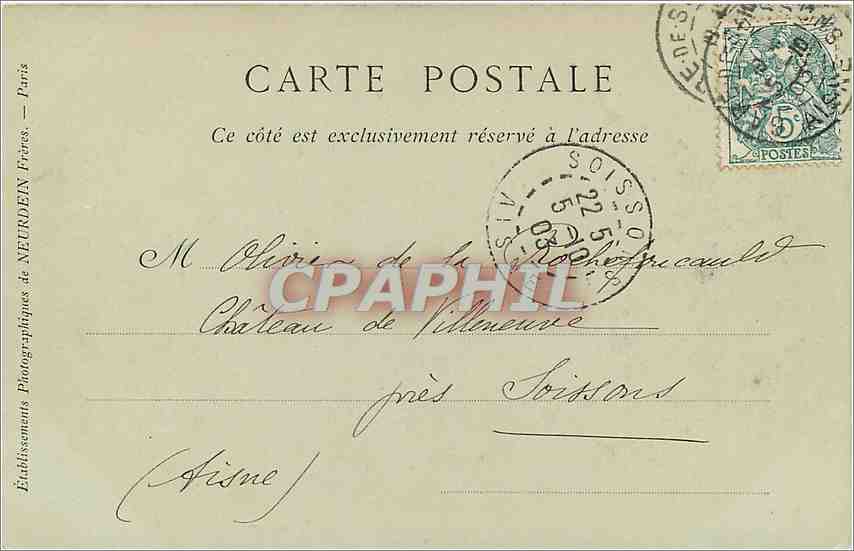 CARTE POSTALE
Ce côté est exclusivement réservé à l'adresse
5c
POSTES
SOISSONS
22 - 5
5 10
03
M Olivier de la Rochefoucauld
CPAPHIL
Château de Villeneuve
près Soissons
(Aisne)
Établissements Photographiques de NEURDEIN Frères. — Paris